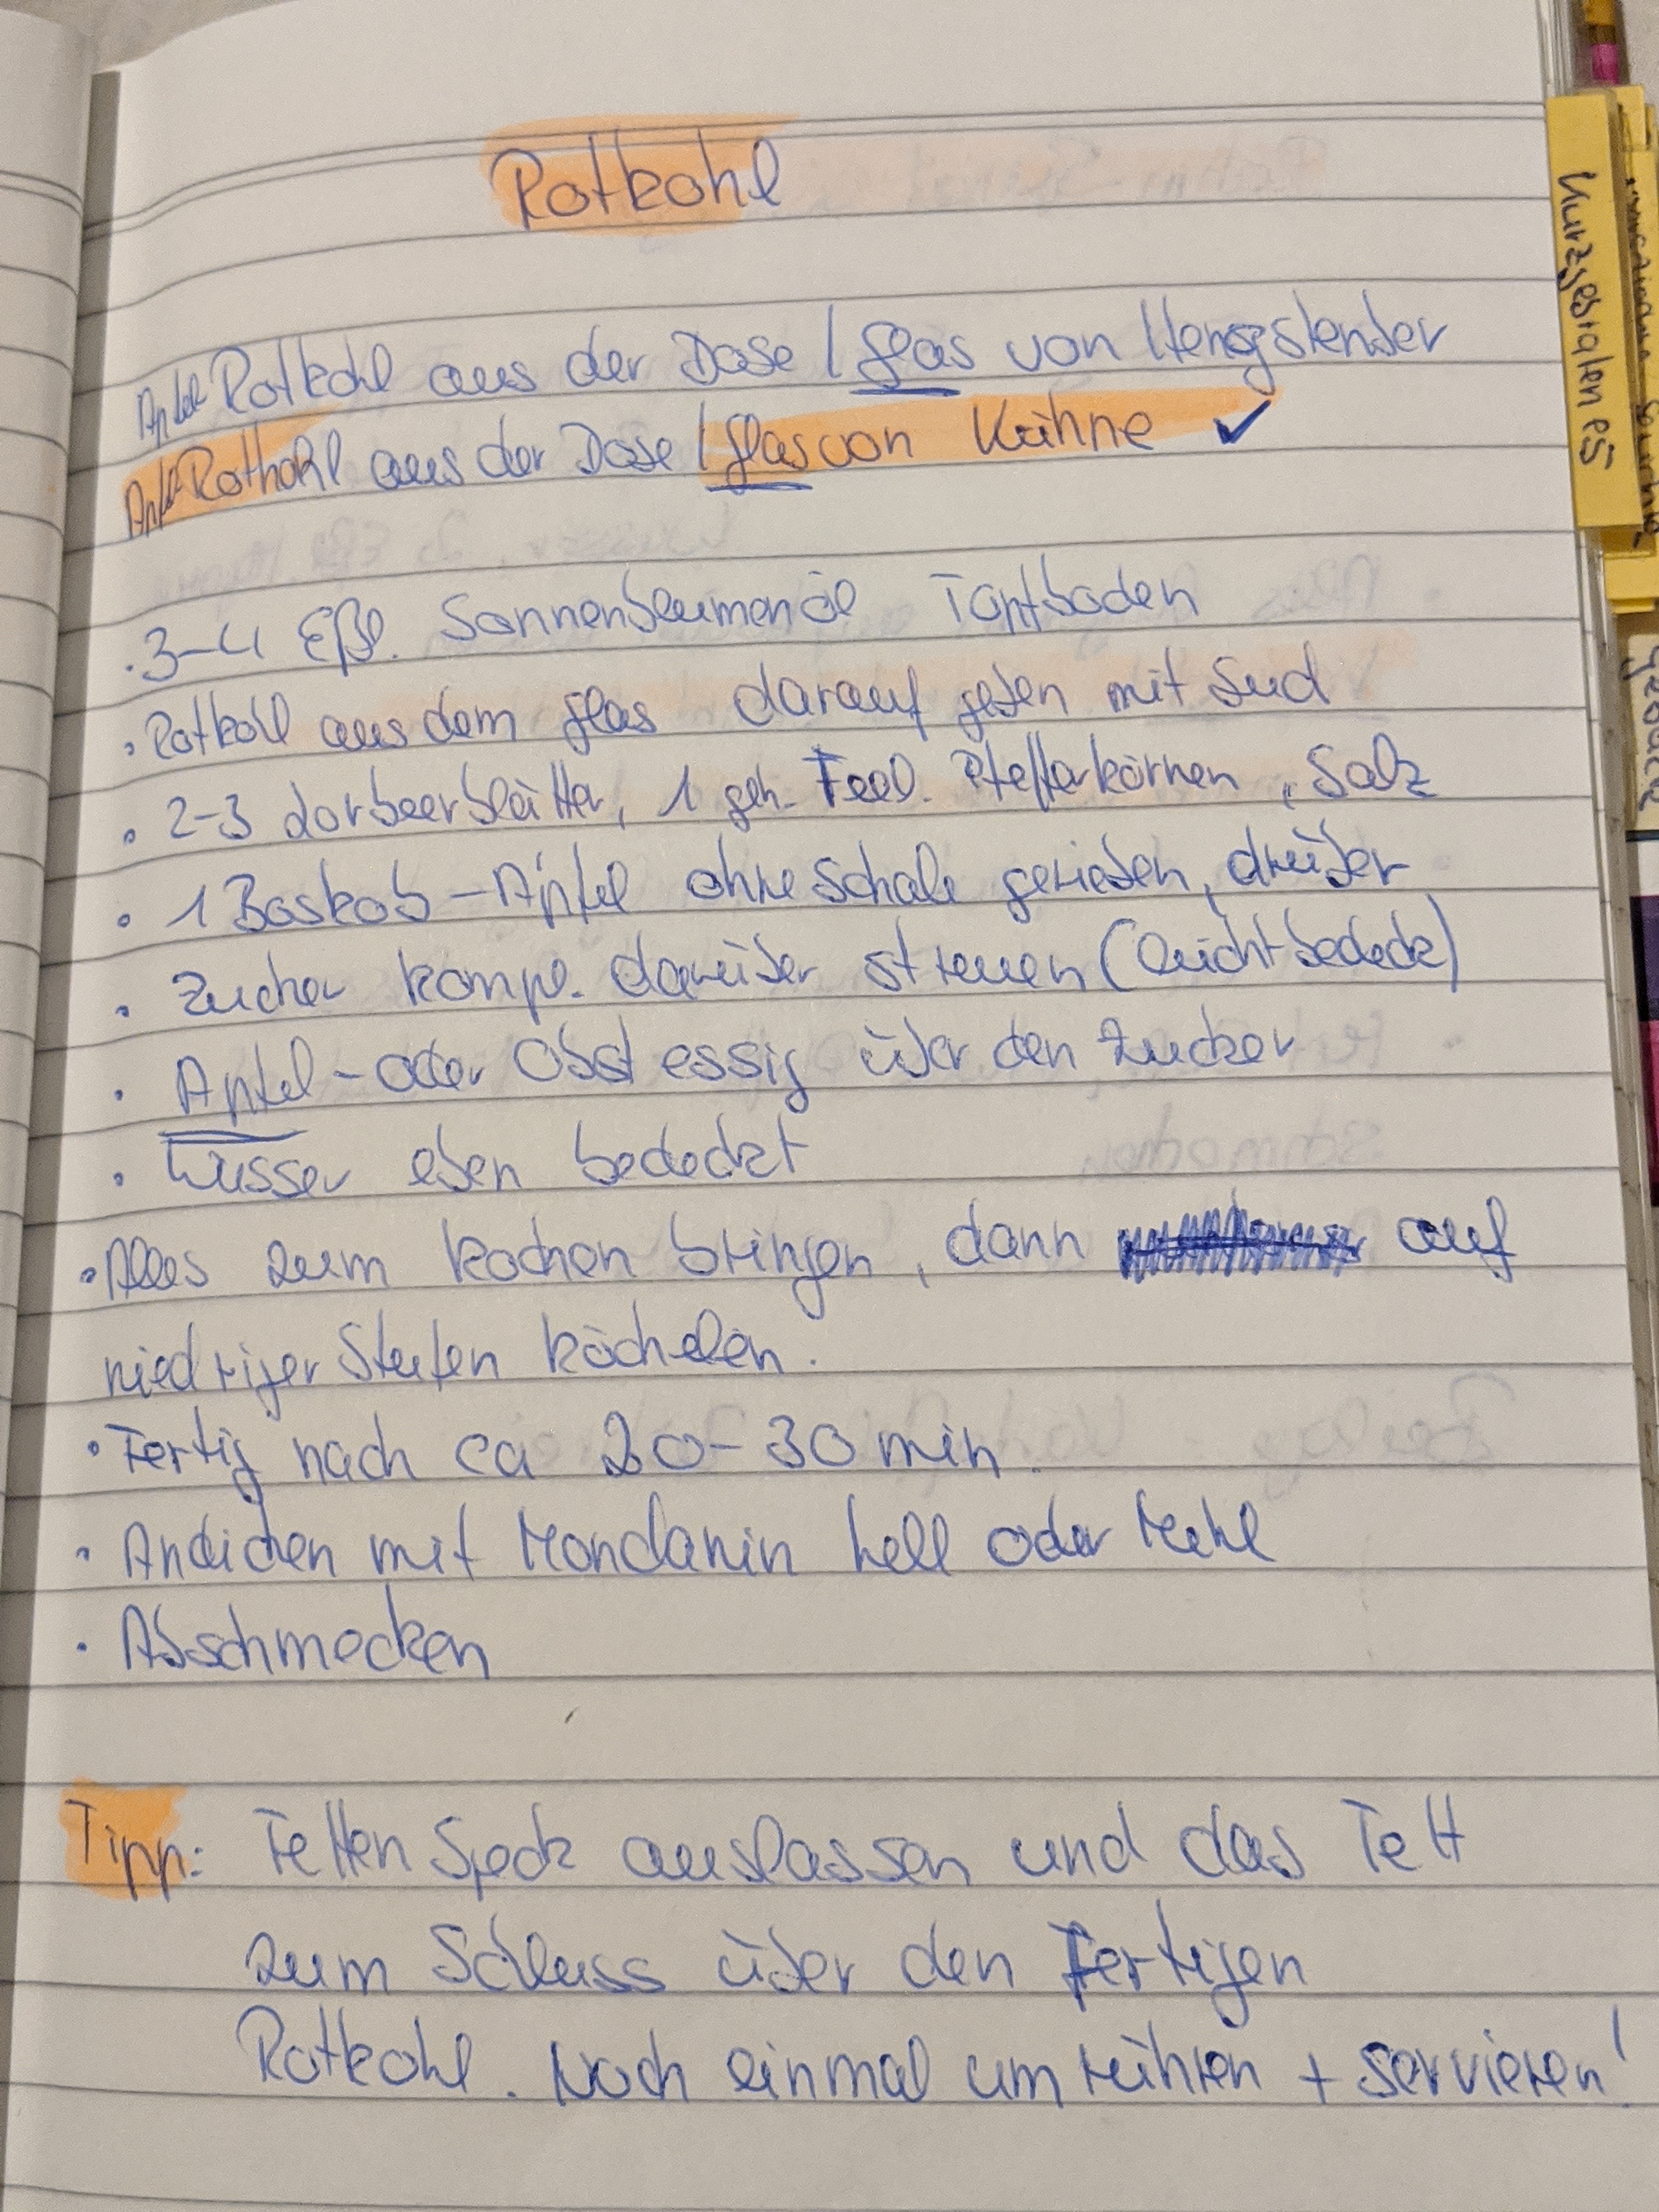 Rotkohl
Apfel Rotkohl aus der Dose / Glas von Hengstenber
Apfel-Rotkohl aus der Dose / Glas von Kühne ✓
· 3-4 Eßl. Sonnenblumenöl Topfboden
· Rotkohl aus dem Glas darauf geben mit Sud
· 2-3 Lorbeerblätter, 1 geh. Teel. Pfefferkörner, Salz
· 1 Boskob-Apfel ohne Schale gerieben, drüber
· Zucker kompl. darüber streuen (leicht bedeckt)
· Apfel- oder Obstessig über den Zucker
· Wasser eben bedeckt
· Alles zum kochen bringen, dann auf
niedriger Stufen köcheln.
· Fertig nach ca 20-30 min.
· Andicken mit Mondamin hell oder Mehl
· Abschmecken
Tipp: Fetten Speck auslassen und das Fett
zum Schluss über den Fertigen
Rotkohl. Noch einmal umrühren + servieren!
Kurzgebratenes